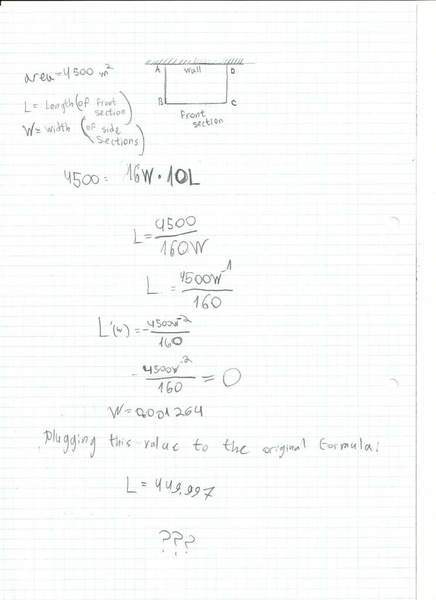 area = 4500 m²
A wall D
B C
Front section
L = Length (of front section)
W = width (of side sections)
4500 = 16W · 10L
L = 4500 / 160W
L = 4500W⁻¹ / 160
L'(w) = -4500W⁻² / 160
- 4500W⁻² / 160 = 0
W = 0.001264
Plugging this value to the original formula:
L = 449.997
???